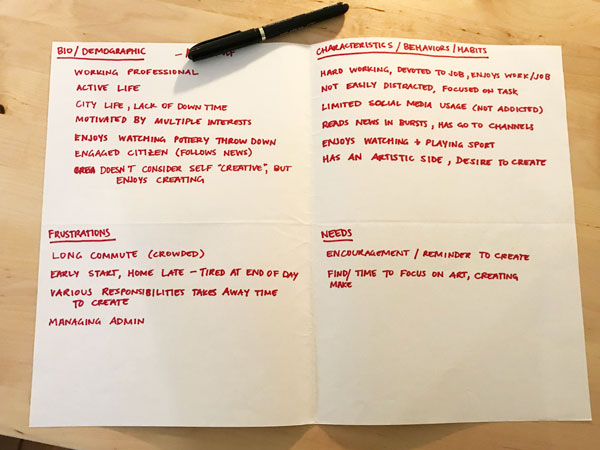 BIO/DEMOGRAPHIC
WORKING PROFESSIONAL
ACTIVE LIFE
CITY LIFE, LACK OF DOWN TIME
MOTIVATED BY MULTIPLE INTERESTS
ENJOYS WATCHING POTTERY THROW DOWN
ENGAGED CITIZEN (FOLLOWS NEWS)
DOESN'T CONSIDER SELF "CREATIVE", BUT
ENJOYS CREATING
CHARACTERISTICS/BEHAVIORS/HABITS
HARD WORKING, DEVOTED TO JOB, ENJOYS WORK/JOB
NOT EASILY DISTRACTED, FOCUSED ON TASK
LIMITED SOCIAL MEDIA USAGE (NOT ADDICTED)
READS NEWS IN BURSTS, HAS GO TO CHANNELS
ENJOYS WATCHING + PLAYING SPORT
HAS AN ARTISTIC SIDE, DESIRE TO CREATE
FRUSTRATIONS
LONG COMMUTE (CROWDED)
EARLY START, HOME LATE - TIRED AT END OF DAY
VARIOUS RESPONSIBILITIES TAKES AWAY TIME
TO CREATE
MANAGING ADMIN
NEEDS
ENCOURAGEMENT/REMINDER TO CREATE
FIND/TIME TO FOCUS ON ART, CREATING
MAKE